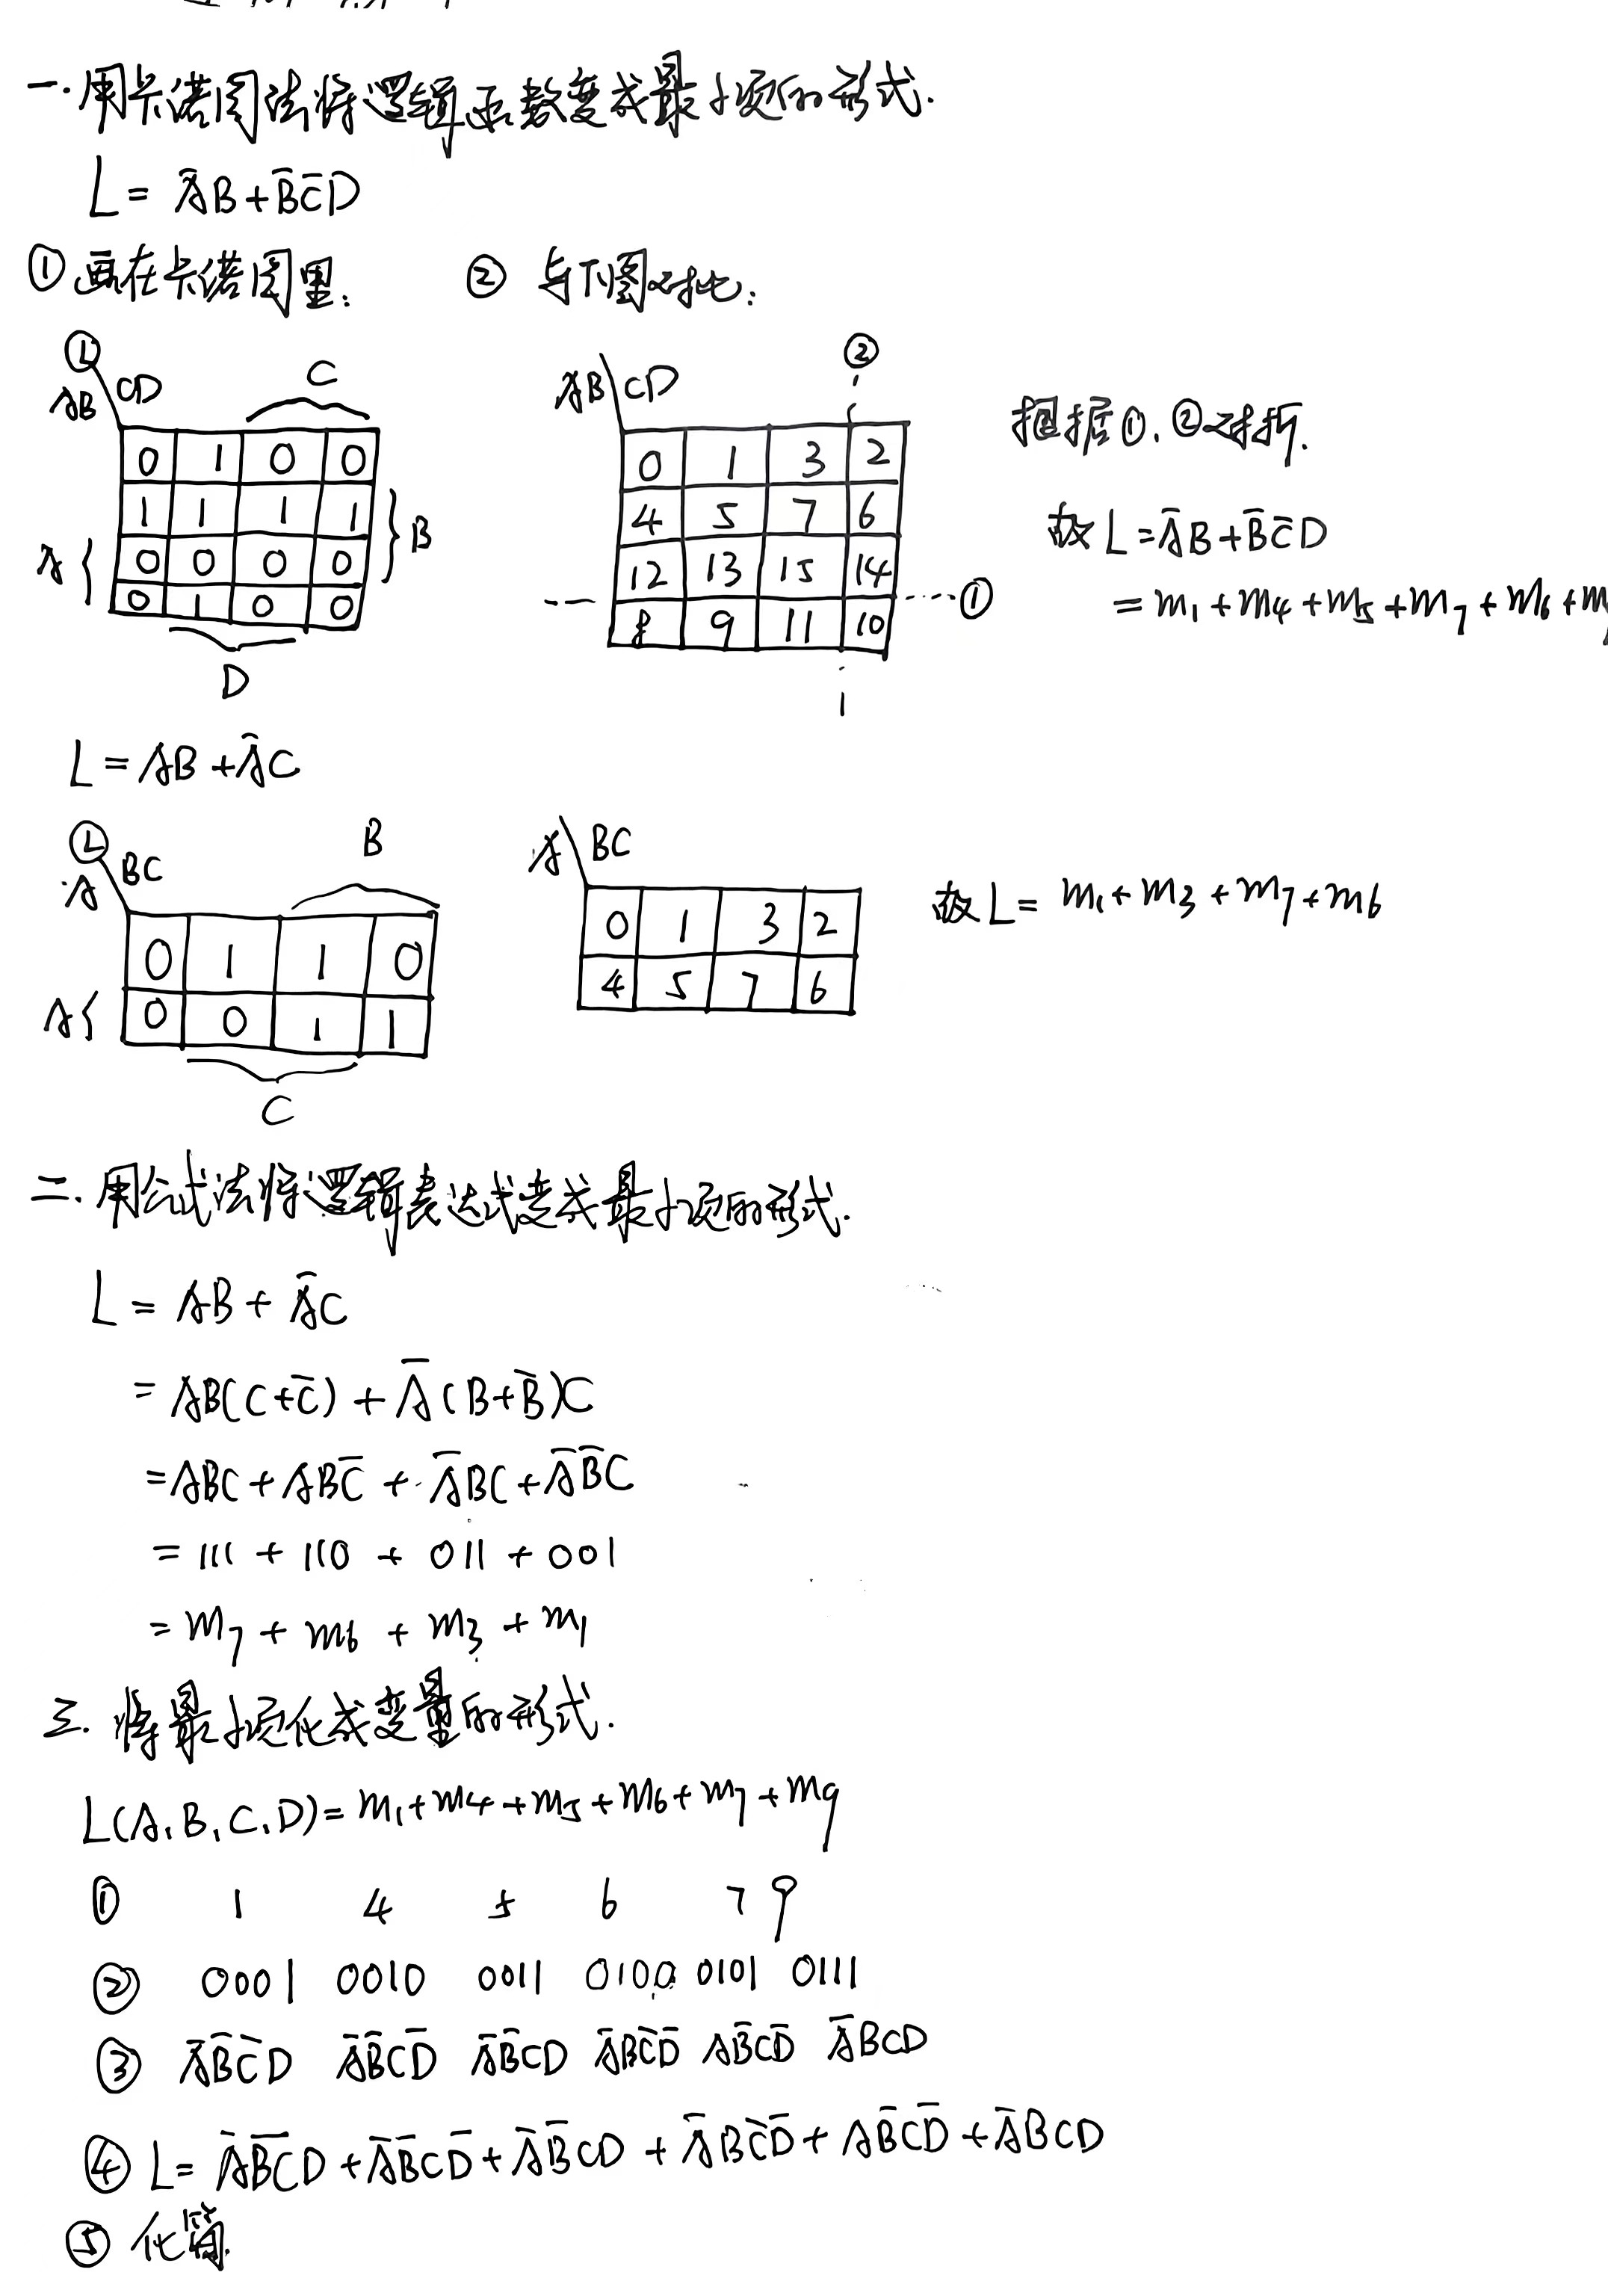 一.用卡诺图法将逻辑函数变成最小项的形式.
L = A̅B + B̅C̅D
① 画在卡诺图里: ② 与下图对比:
Ⓛ AB CD C
0 1 0 0
1 1 1 1 } B
A { 0 0 0 0
0 1 0 0
D
AB CD ②
0 1 3 2
4 5 7 6
12 13 15 14
8 9 11 10 ①
根据①.②对折.
故 L = A̅B + B̅C̅D
= m₁ + m₄ + m₅ + m₇ + m₆ + m
L = AB + A̅C
Ⓛ A BC B
0 1 1 0
A { 0 0 1 1
C
A BC
0 1 3 2
4 5 7 6
故 L = m₁ + m₃ + m₇ + m₆
二.用公式法将逻辑表达式变成最小项的形式.
L = AB + A̅C
= AB(C+C̅) + A̅(B+B̅)C
= ABC + ABC̅ + A̅BC + A̅B̅C
= 111 + 110 + 011 + 001
= m₇ + m₆ + m₃ + m₁
三.将最小项化成变量的形式.
L(A,B,C,D) = m₁ + m₄ + m₅ + m₆ + m₇ + m₉
① 1 4 5 6 7 9
② 0001 0010 0011 0100 0101 0111
③ A̅B̅C̅D A̅B̅CD̅ A̅B̅CD A̅BC̅D̅ AB̅CD̅ A̅BCD
④ L = A̅B̅C̅D + A̅B̅CD̅ + A̅B̅CD + A̅BC̅D̅ + AB̅CD̅ + A̅BCD
⑤ 化简.